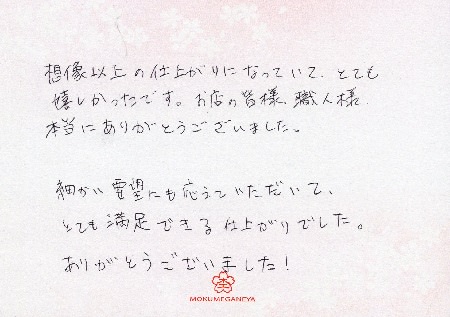 想像以上の仕上がりになっていて、とても
嬉しかったです。お店の皆様、職人様、
本当にありがとうございました。
細かい要望にも応えていただいて、
とても満足できる仕上がりでした。
ありがとうございました!
杢
MOKUMEGANEYA